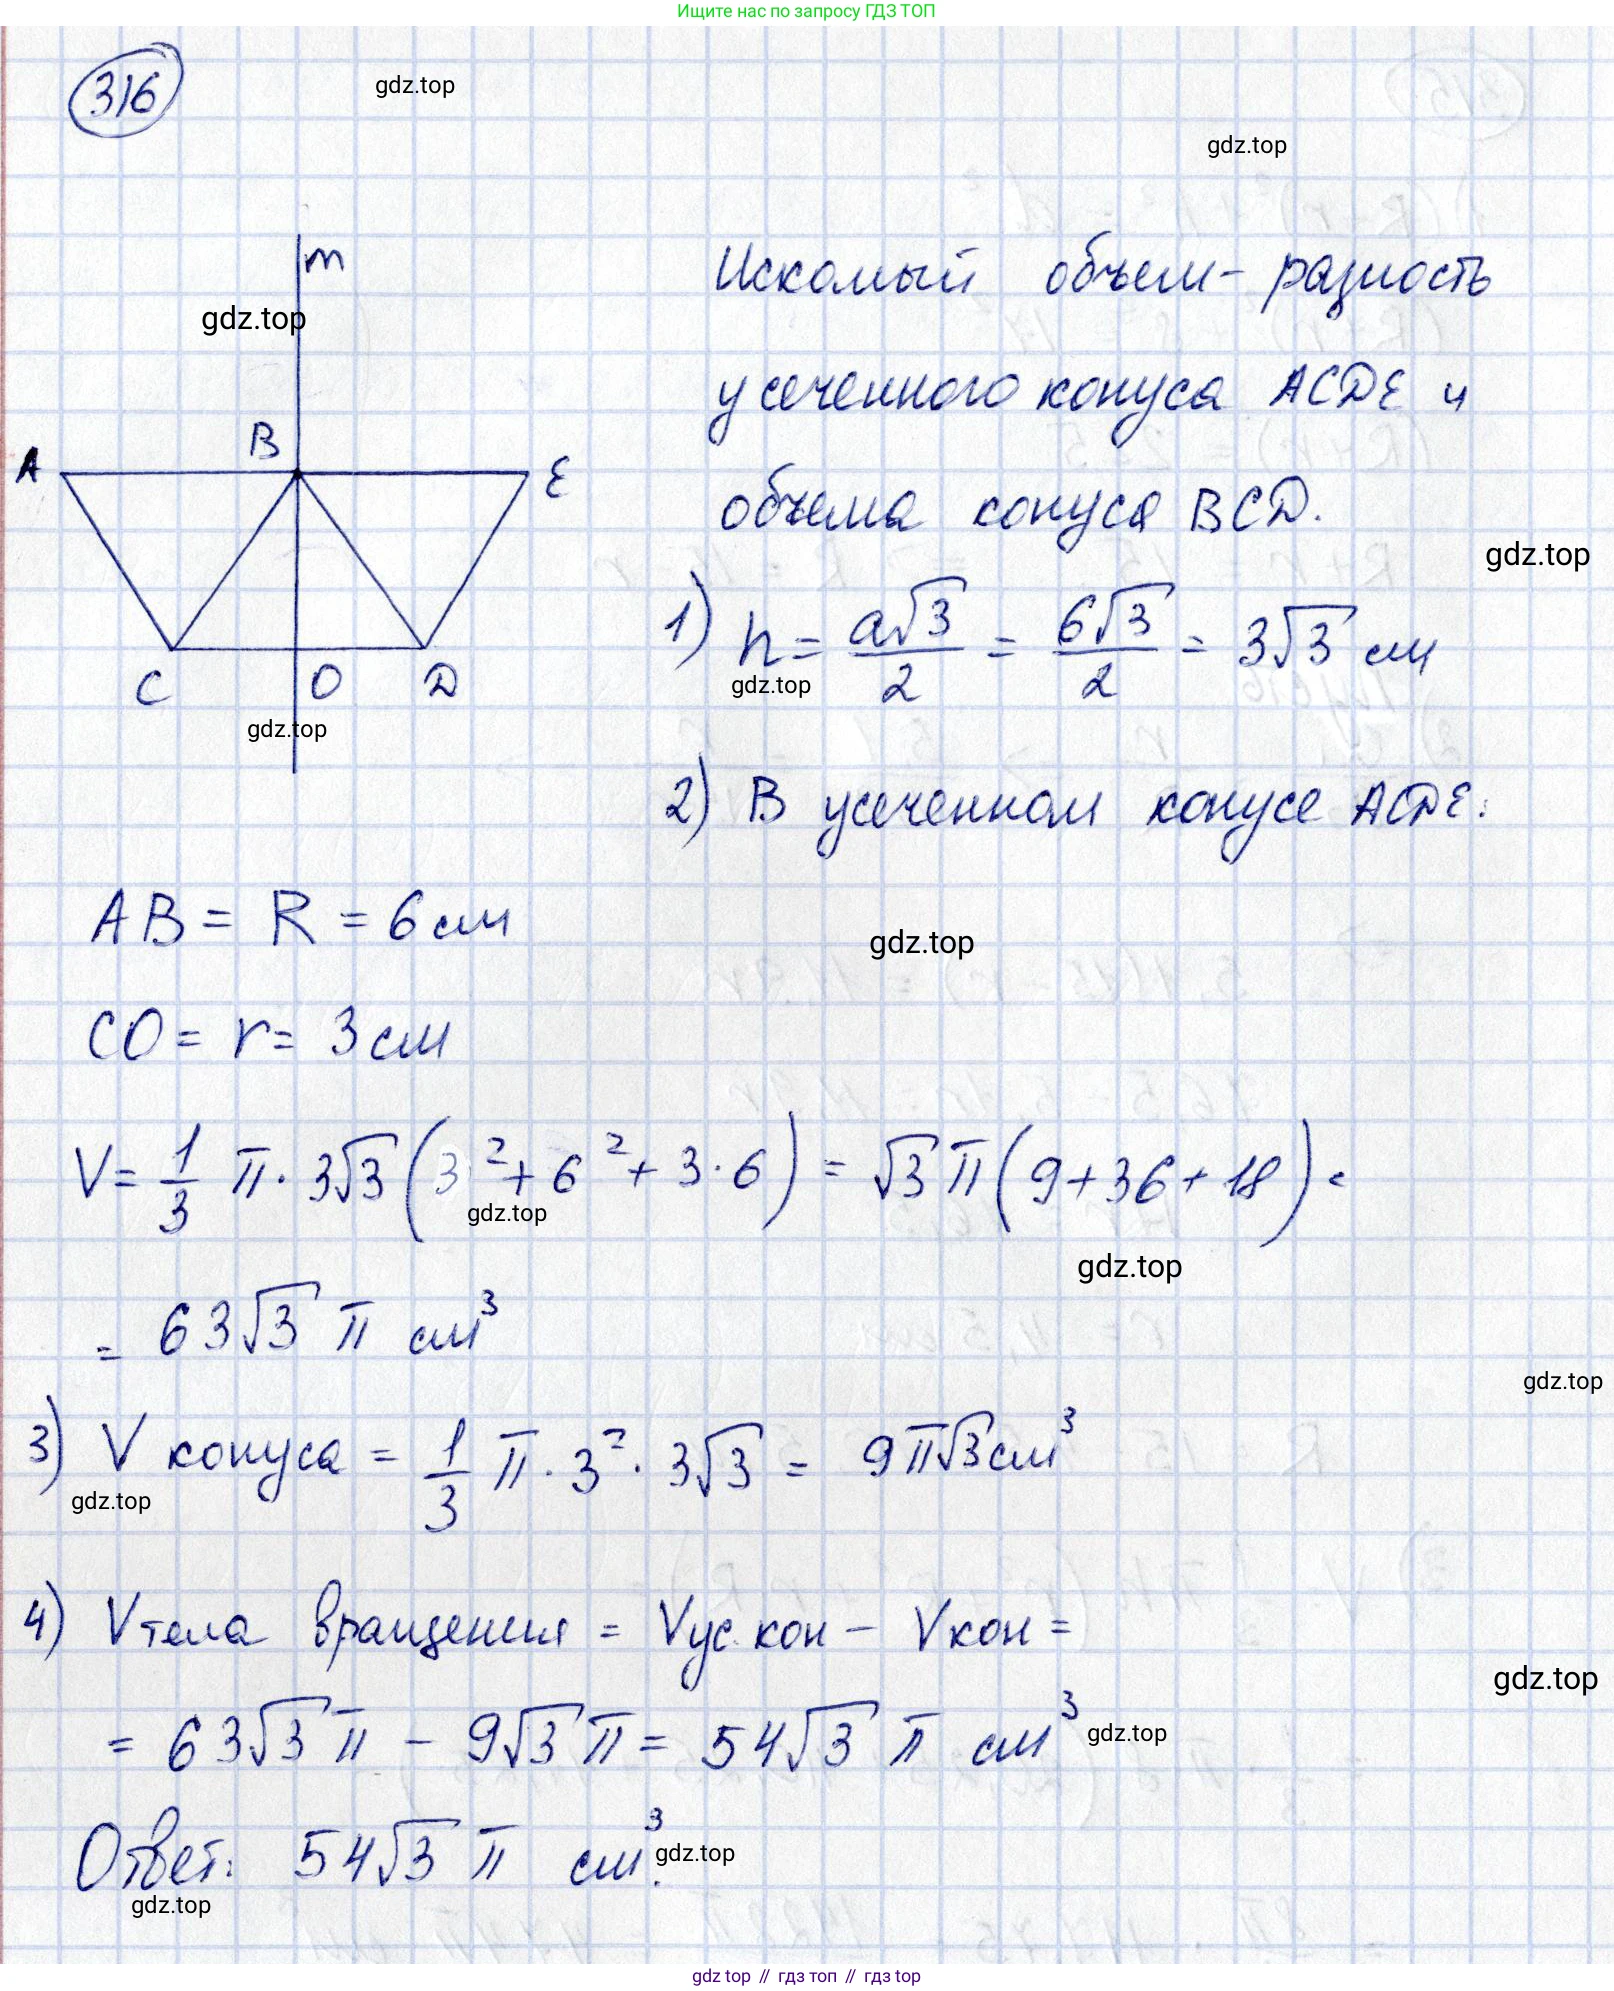 Ищите нас по запросу ГДЗ ТОП
316
gdz.top
gdz.top
m
gdz.top
B
A
E
C
O
D
gdz.top
Искомый объем - разность
усеченного конуса ACDE и
объема конуса BCD.
gdz.top
1) h = a√3/2 = 6√3/2 = 3√3 см
gdz.top
2) В усеченном конусе ACDE:
AB = R = 6 см
gdz.top
CO = r = 3 см
V = 1/3 π · 3√3 (3² + 6² + 3·6) = √3 π (9 + 36 + 18) =
gdz.top
gdz.top
= 63√3 π см³
gdz.top
3) V конуса = 1/3 π · 3² · 3√3 = 9π√3 см³
gdz.top
4) V тела вращения = Vус. кон - Vкон =
gdz.top
= 63√3 π - 9√3 π = 54√3 π см³
gdz.top
Ответ: 54√3 π см³.
gdz.top
gdz.top
gdz top // гдз топ // гдз top